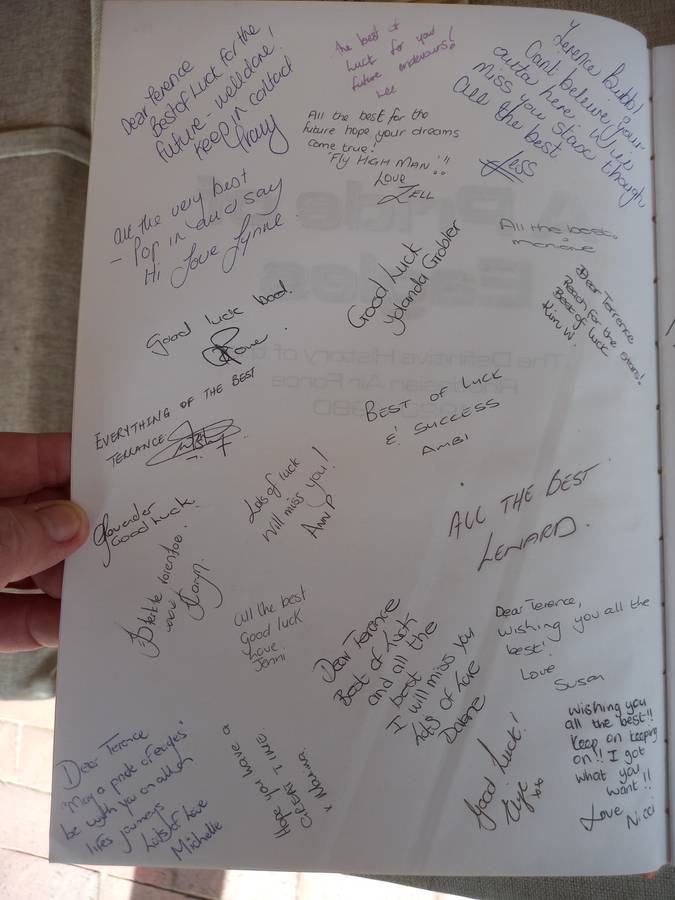 Dear Terence
Best of Luck for the
future - well done!
Keep in contact
the best of
luck for your
future endeavours!
Lee
Terence Bubb!
Cant believe your
outta here. Will
miss you stax though
all the best
Jess
All the best for the
future hope your dreams
come true!
"Fly HIGH MAN"!!
LOVE
ZELL
all the very best
- Pop in and say
Hi Love Lynne
Good Luck
Yolanda Grobler
All the best
Dear Terrence
Reach for the stars!
Best of luck
Kim W.
Good luck bood.
A Pride of
Eagles
The Definitive History of the
Rhodesian Air Force
EVERYTHING OF THE BEST
TERRANCE
BEST OF LUCK
& SUCCESS
AMBI
Lots of luck
Will miss you!
Ann P
Good luck.
ALL THE BEST
LENARD.
All the best
Good luck
Love
Jenni
Dear Terence
Best of Luck
and all the
best
I will miss you
lots of love
Dear Terence,
wishing you all the
best!
Love
Susan
Dear Terence
"May a pride of eagles"
be with you on all of
lifes journeys
Lots of love
Michelle
Hope you have a
GREAT TIME.
Good Luck!
xoxo
Wishing you
all the best!!
Keep on keeping
on!! I got
what you
want!!
Love Nicci